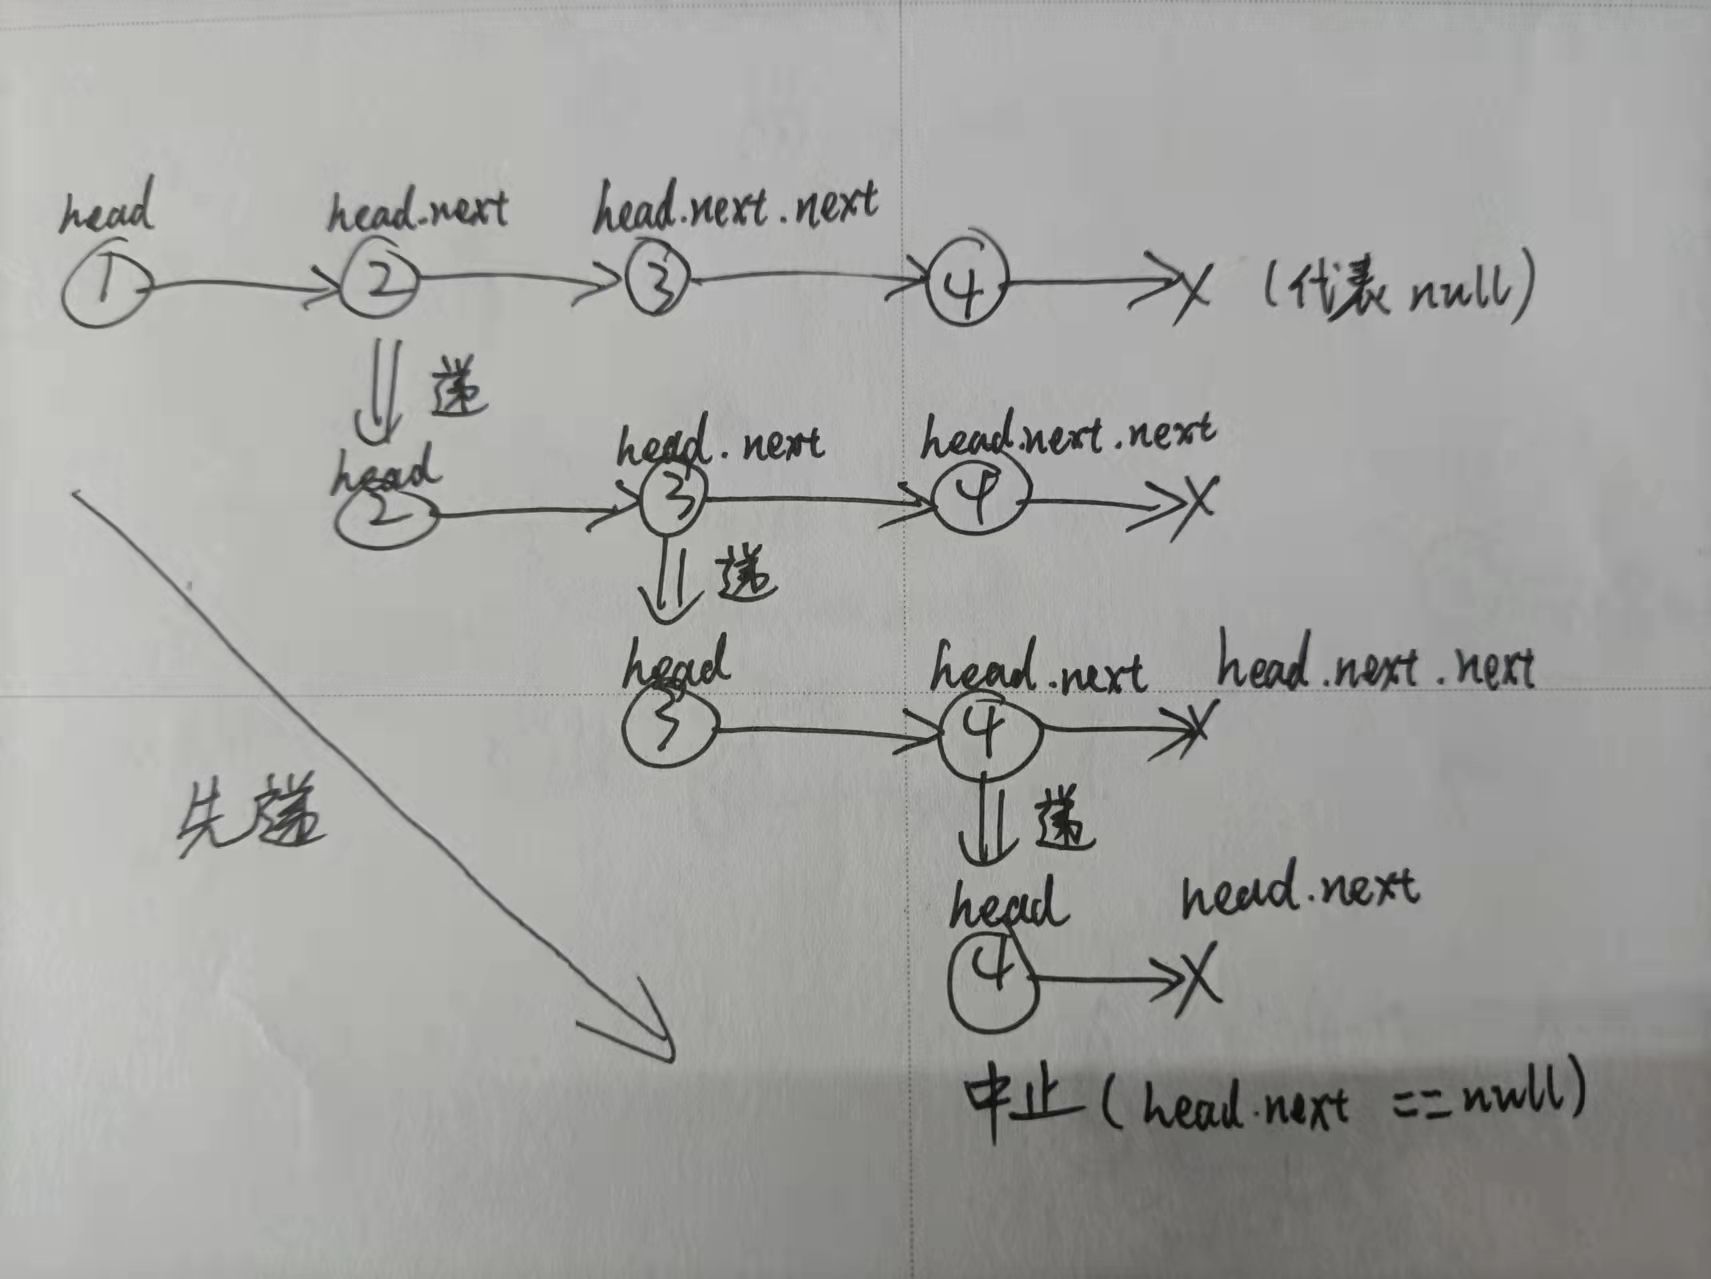 head head.next head.next.next
1 2 3 4 X (代表 null)
递
head head.next head.next.next
2 3 4 X
递
head head.next head.next.next
3 4 X
先递
递
head head.next
4 X
中止(head.next == null)